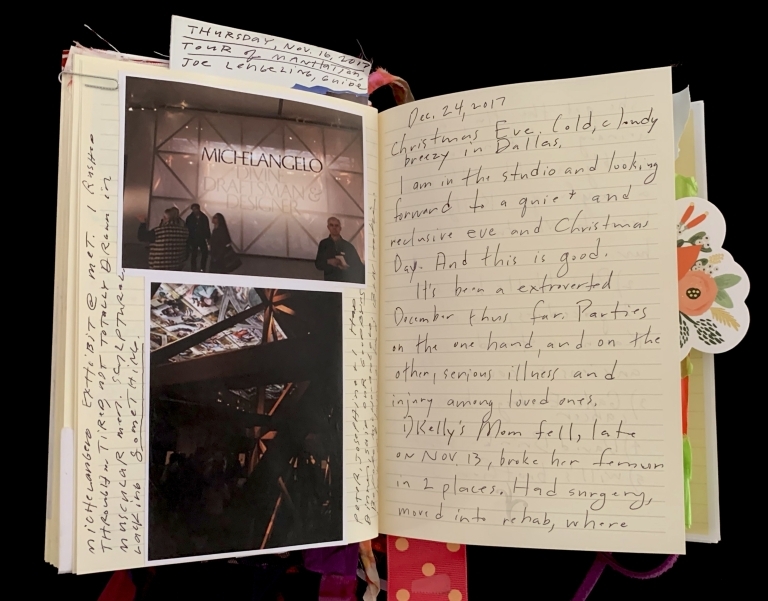 THURSDAY, NOV. 16, 2017
TOUR OF MANHATTAN,
JOE LENGELING, GUIDE
MICHELANGELO
DIVINE
DRAFTSMAN &
DESIGNER
MICHELANGELO EXHIBIT @ MET. I RUSHED
THROUGH - TIRED, NOT TOTALLY DRAWN IN
MUSCULAR MEN. SCULPTURAL
LACKING SOMETHING.
PETER, JOSEPHINE + I
Dec. 24, 2017
Christmas Eve. Cold, cloudy
breezy in Dallas.
I am in the studio and looking
forward to a quiet and
reclusive eve and Christmas
Day. And this is good.
It's been a extroverted
December thus far. Parties
on the one hand, and on the
other, serious illness and
injury among loved ones.
1) Kelly's Mom fell, late
on Nov. 13, broke her femur
in 2 places. Had surgery,
moved into rehab, where